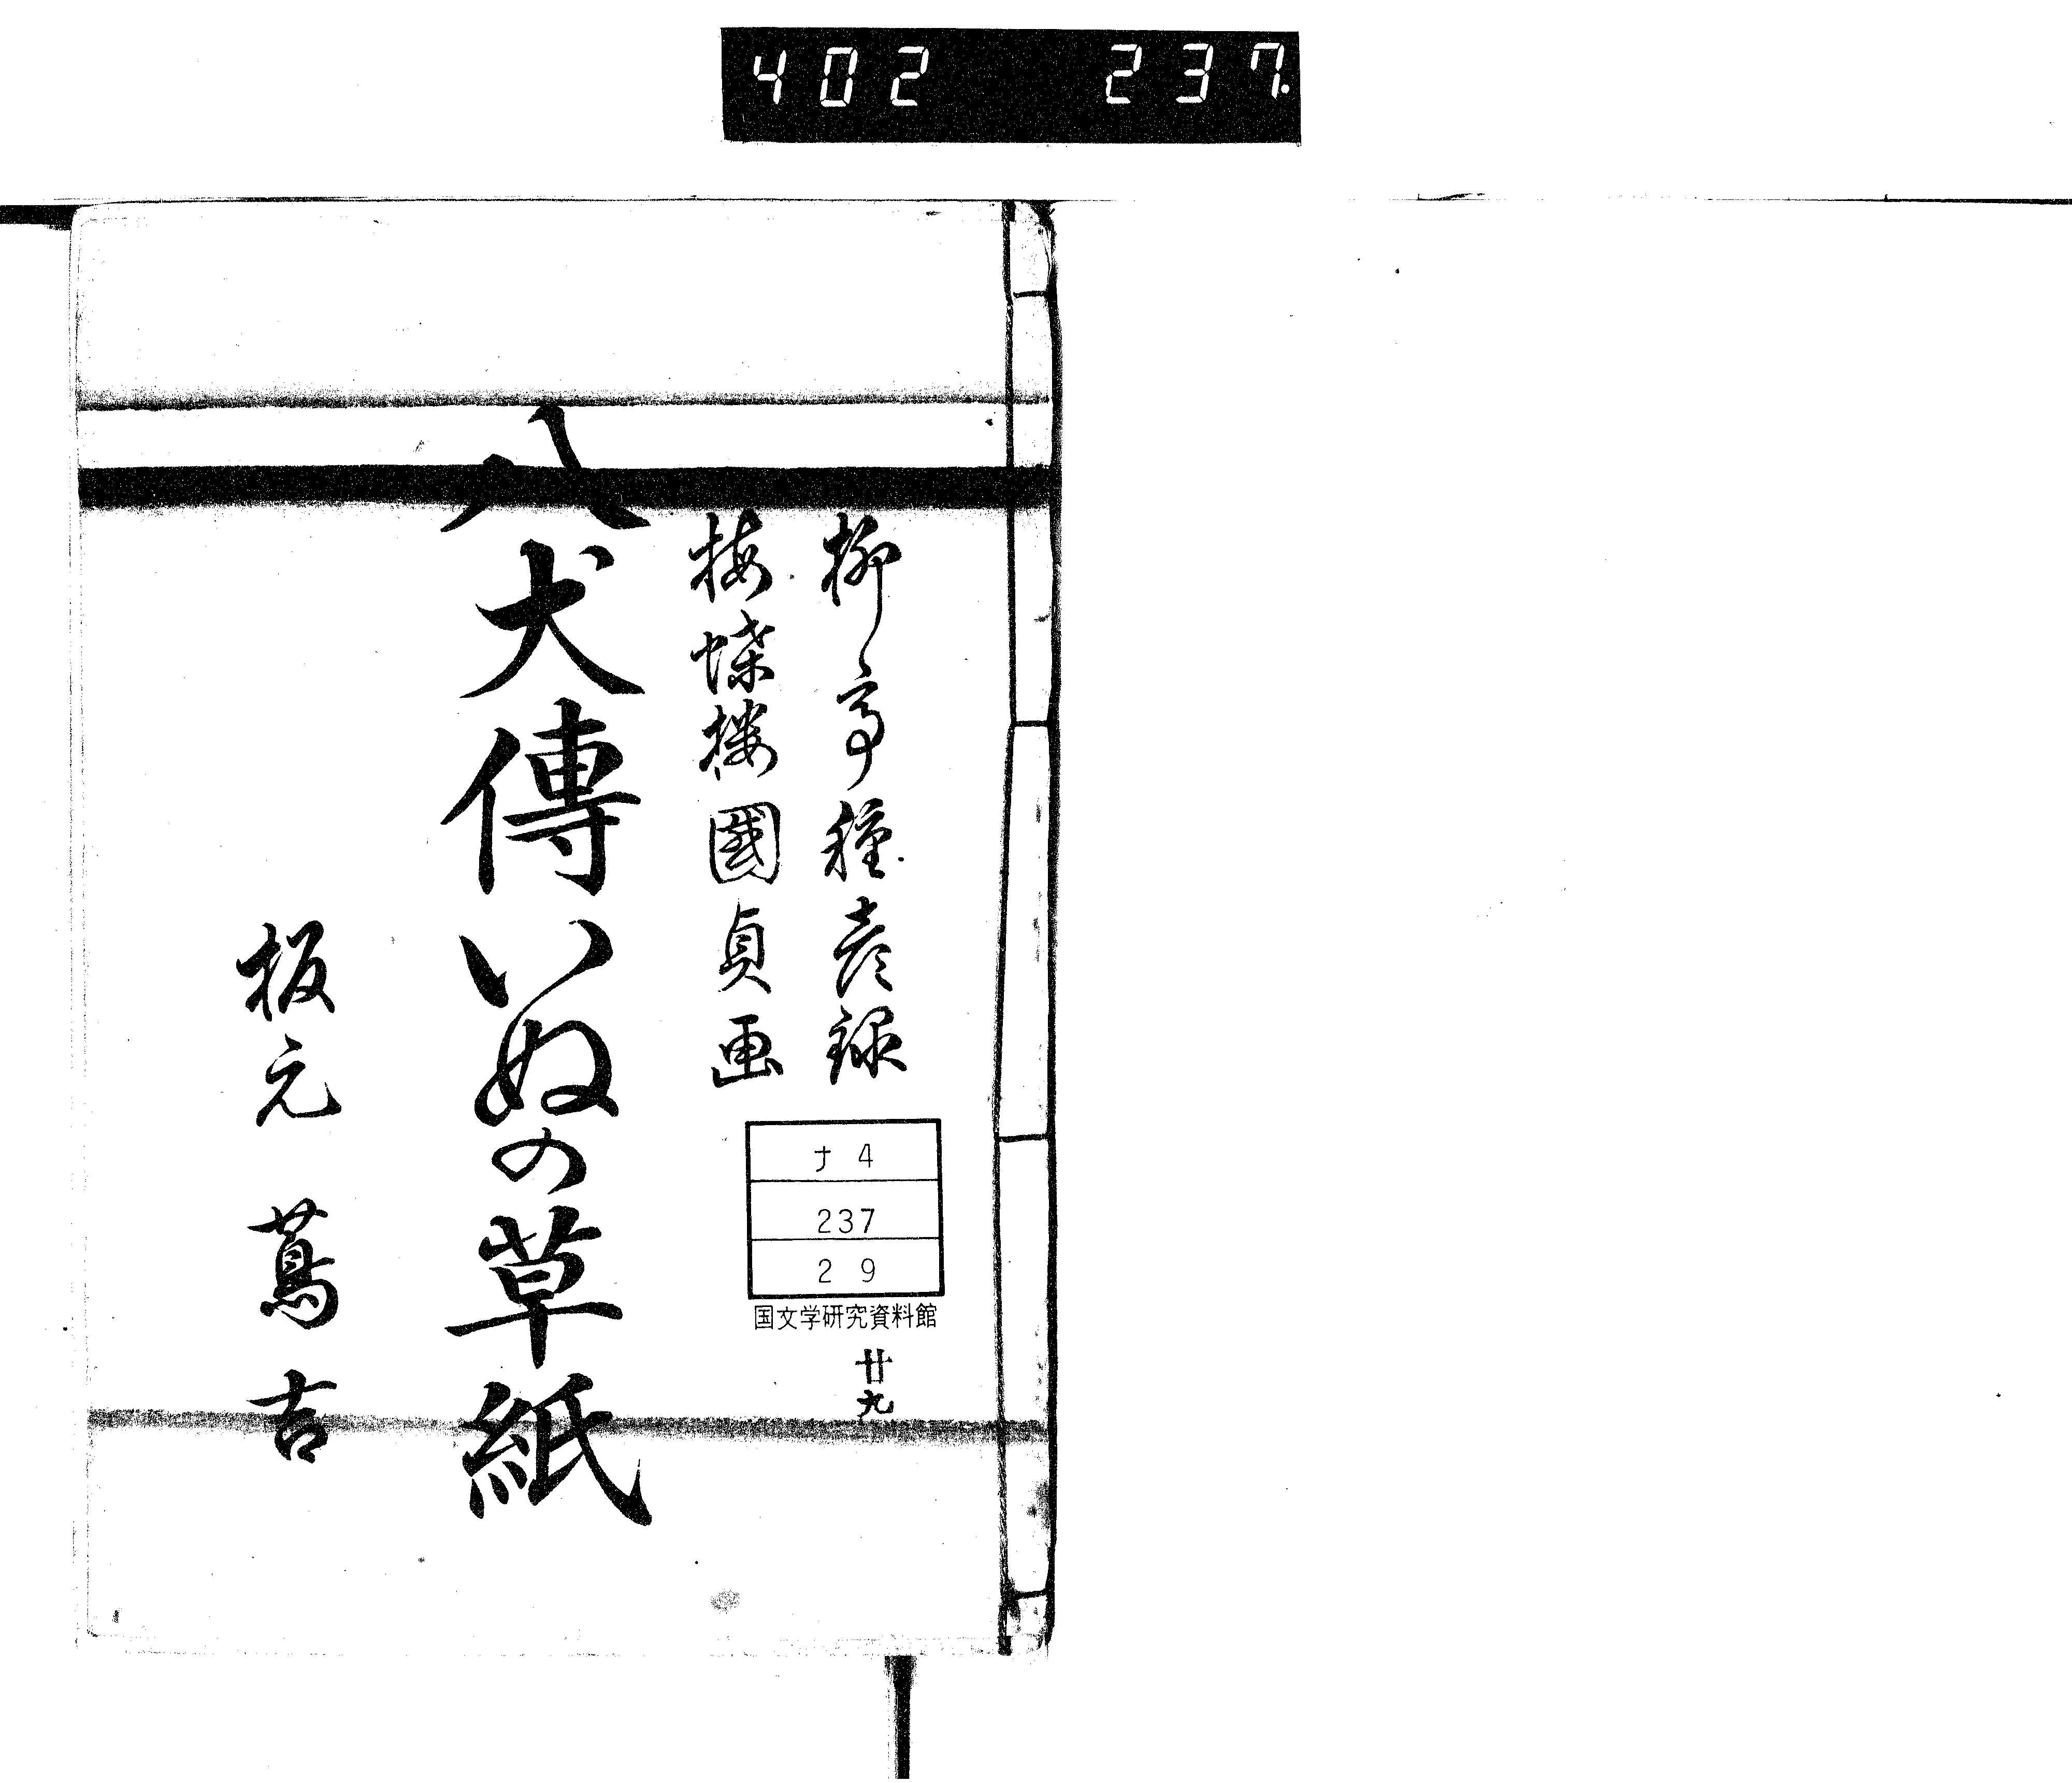 402 237.
柳亭種彦録
梅蝶楼國貞画
八犬傳いぬの草紙
板元 蔦吉
ナ4
237
29
国文学研究資料館
廿九